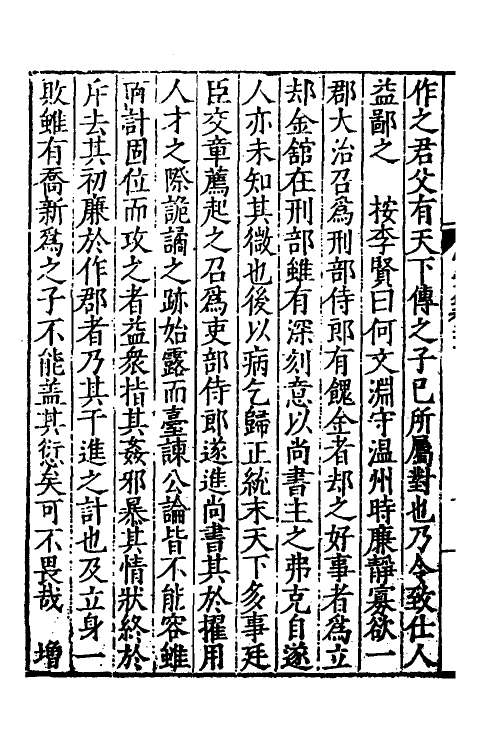 作之君父有天下傳之子已所屬對也乃令致仕人
益鄙之　按李賢曰何文淵守温州時廉靜寡欲一
郡大治召爲刑部侍郎有餽金者却之好事者爲立
却金舘在刑部雖有深刻意以尚書主之弗克自遂
人亦未知其微也後以病乞歸正統末天下多事廷
臣交章薦起之召爲吏部侍郎遂進尚書其於擢用
人才之際詭譎之跡始露而臺諫公論皆不能容雖
計固位而攻之者益衆指其姦邪暴其情狀終於
斥去其初廉於作郡者乃其干進之計也及立身一
敗雖有喬新爲之子不能盖其愆矣可不畏哉　增